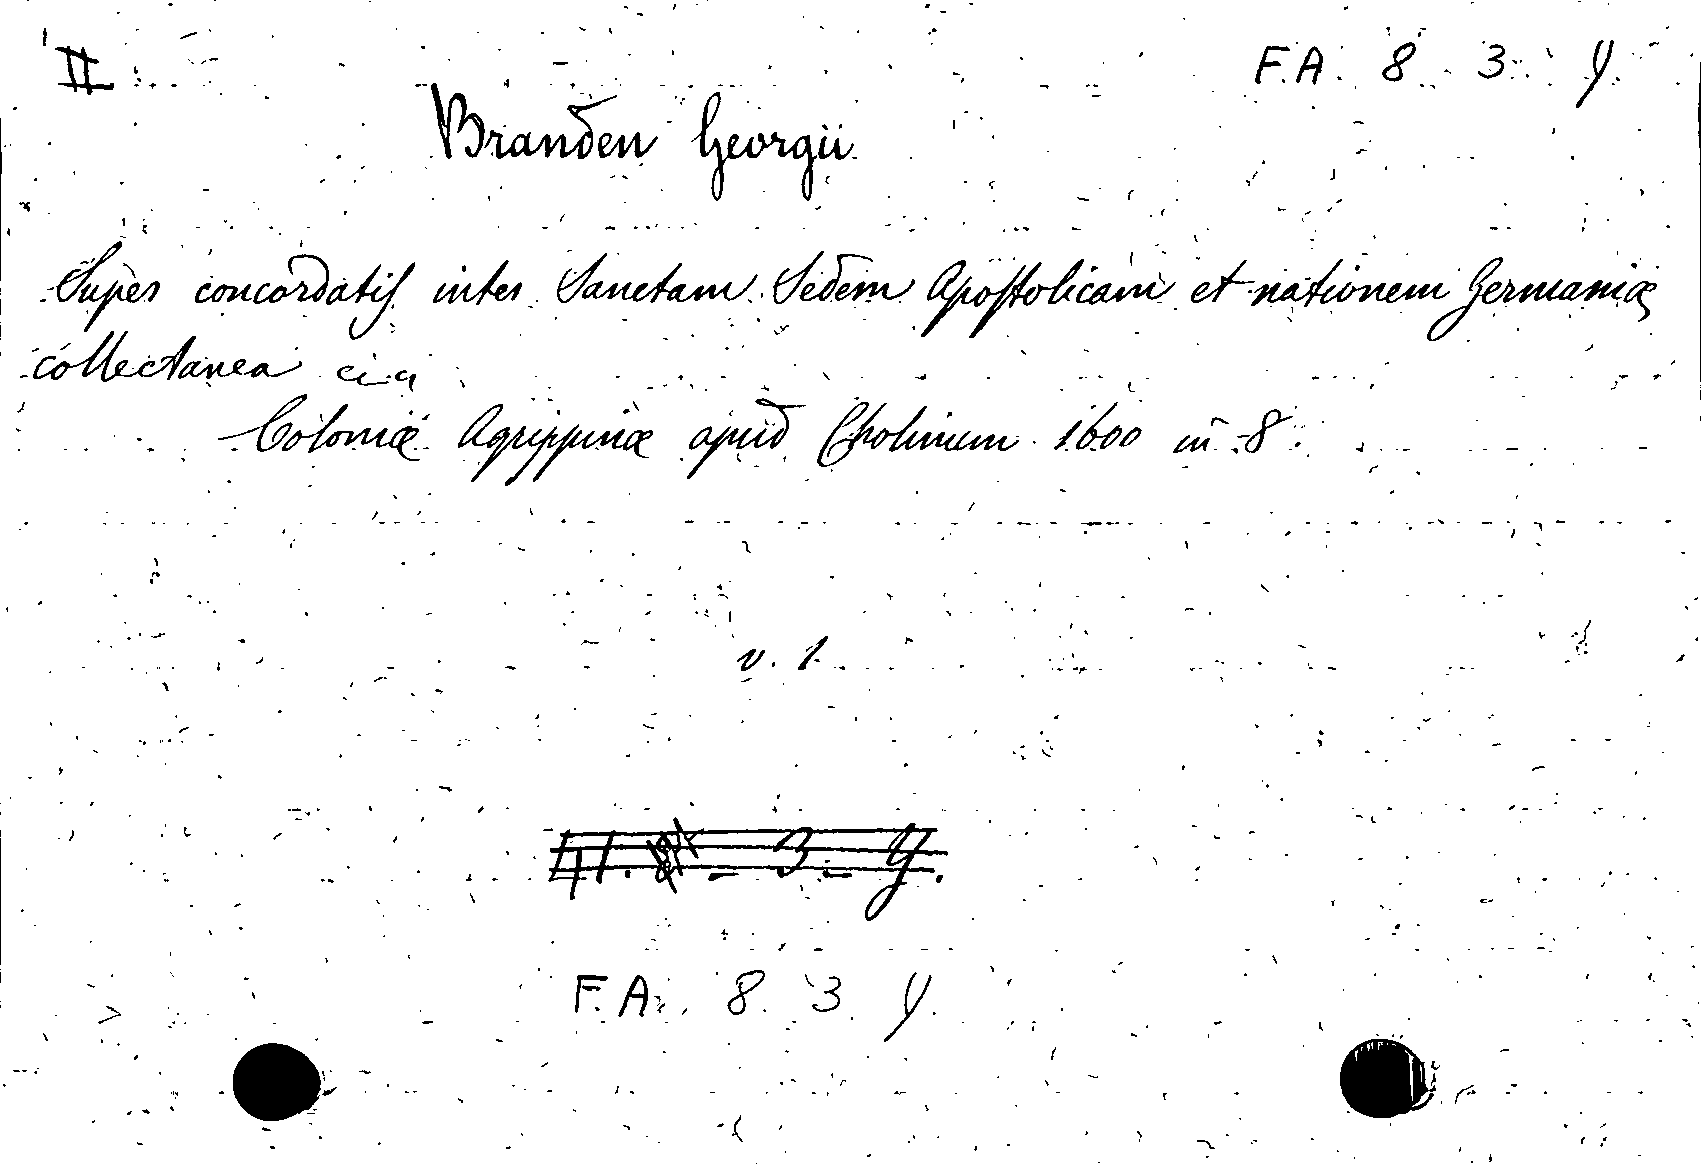 II
F. A. 8 3 Y.
Branden Georgii
Super concordatis inter Sanctam Sedem Apostolicam et nationem Germaniæ
collectanea
Coloniæ Agrippinæ apud Cholinum 1600 in 8.
v. 1
3 - Y.
F. A. 8. 3. Y.